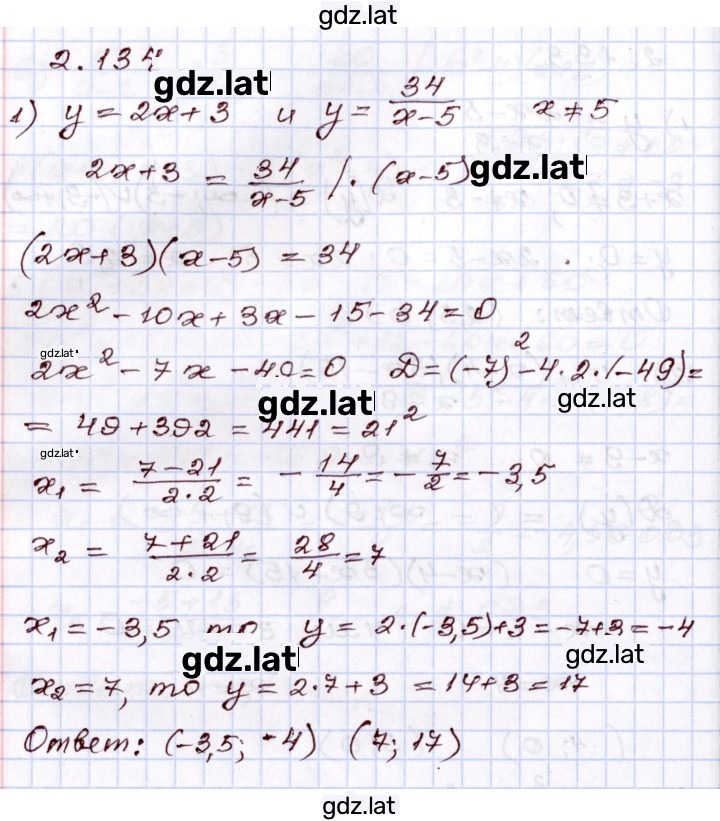 gdz.lat
2.135
gdz.lat
1) y = 2x + 3 и y = 34/(x-5) x ≠ 5
2x+3 = 34/(x-5) /· (x-5)
gdz.lat
(2x+3)(x-5) = 34
2x² - 10x + 3x - 15 - 34 = 0
gdz.lat
2x² - 7x - 49 = 0 D = (-7)² - 4·2·(-49) =
gdz.lat gdz.lat
= 49 + 392 = 441 = 21²
gdz.lat
x₁ = (7-21)/(2·2) = -14/4 = -7/2 = -3,5
x₂ = (7+21)/(2·2) = 28/4 = 7
x₁ = -3,5 то y = 2·(-3,5)+3 = -7+3 = -4
gdz.lat gdz.lat
x₂ = 7, то y = 2·7+3 = 14+3 = 17
Ответ: (-3,5; -4) (7; 17)
gdz.lat